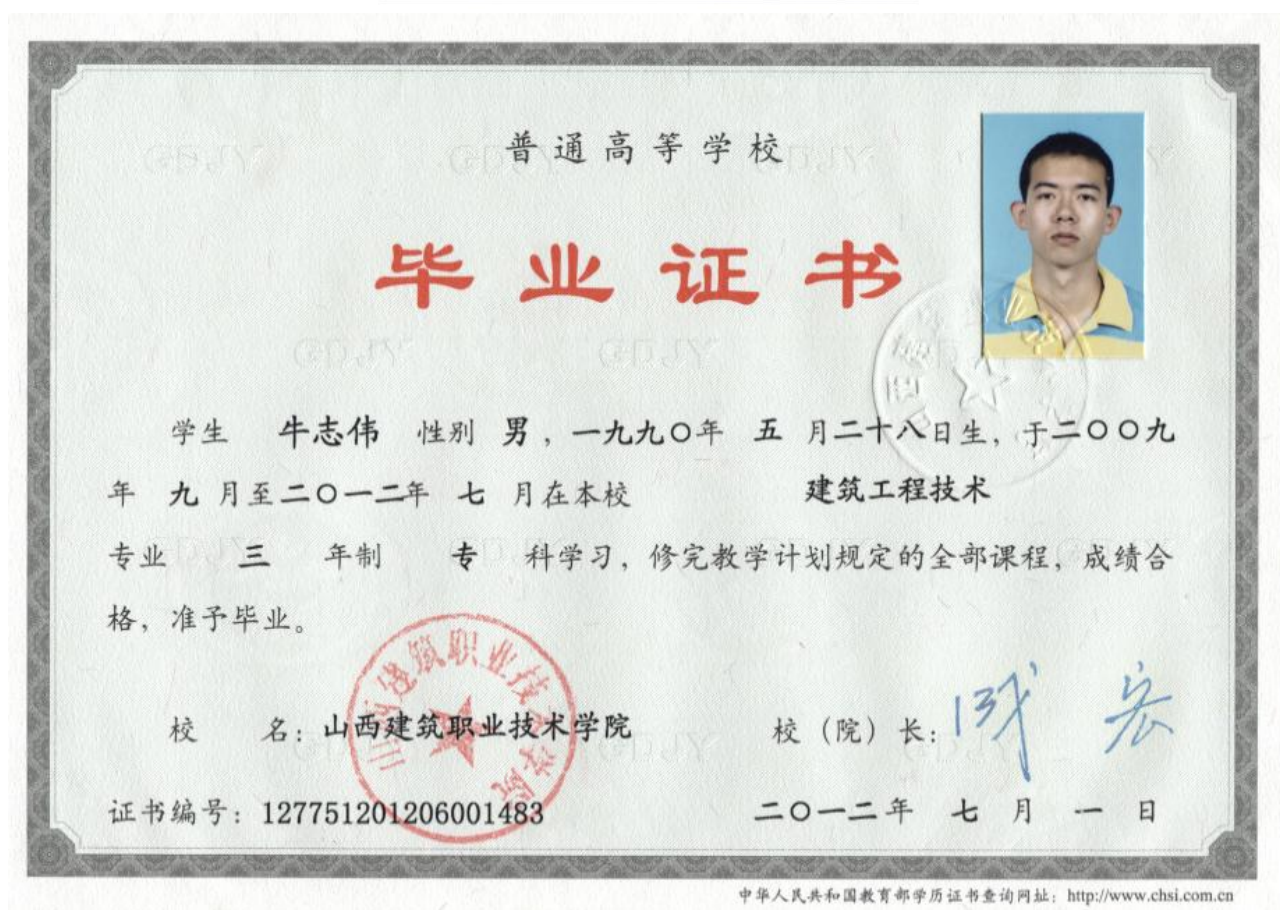 普通高等学校
毕业证书
学生 牛志伟 性别 男，一九九〇年 五 月二十八日生，于二〇〇九
年 九 月至二〇一二年 七 月在本校 建筑工程技术
专业 三 年制 专 科学习，修完教学计划规定的全部课程，成绩合
格，准予毕业。
山西建筑职业技术学院
校 名：山西建筑职业技术学院 校（院）长：
证书编号：127751201206001483 二〇一二年 七 月 一 日
中华人民共和国教育部学历证书查询网址：http://www.chsi.com.cn